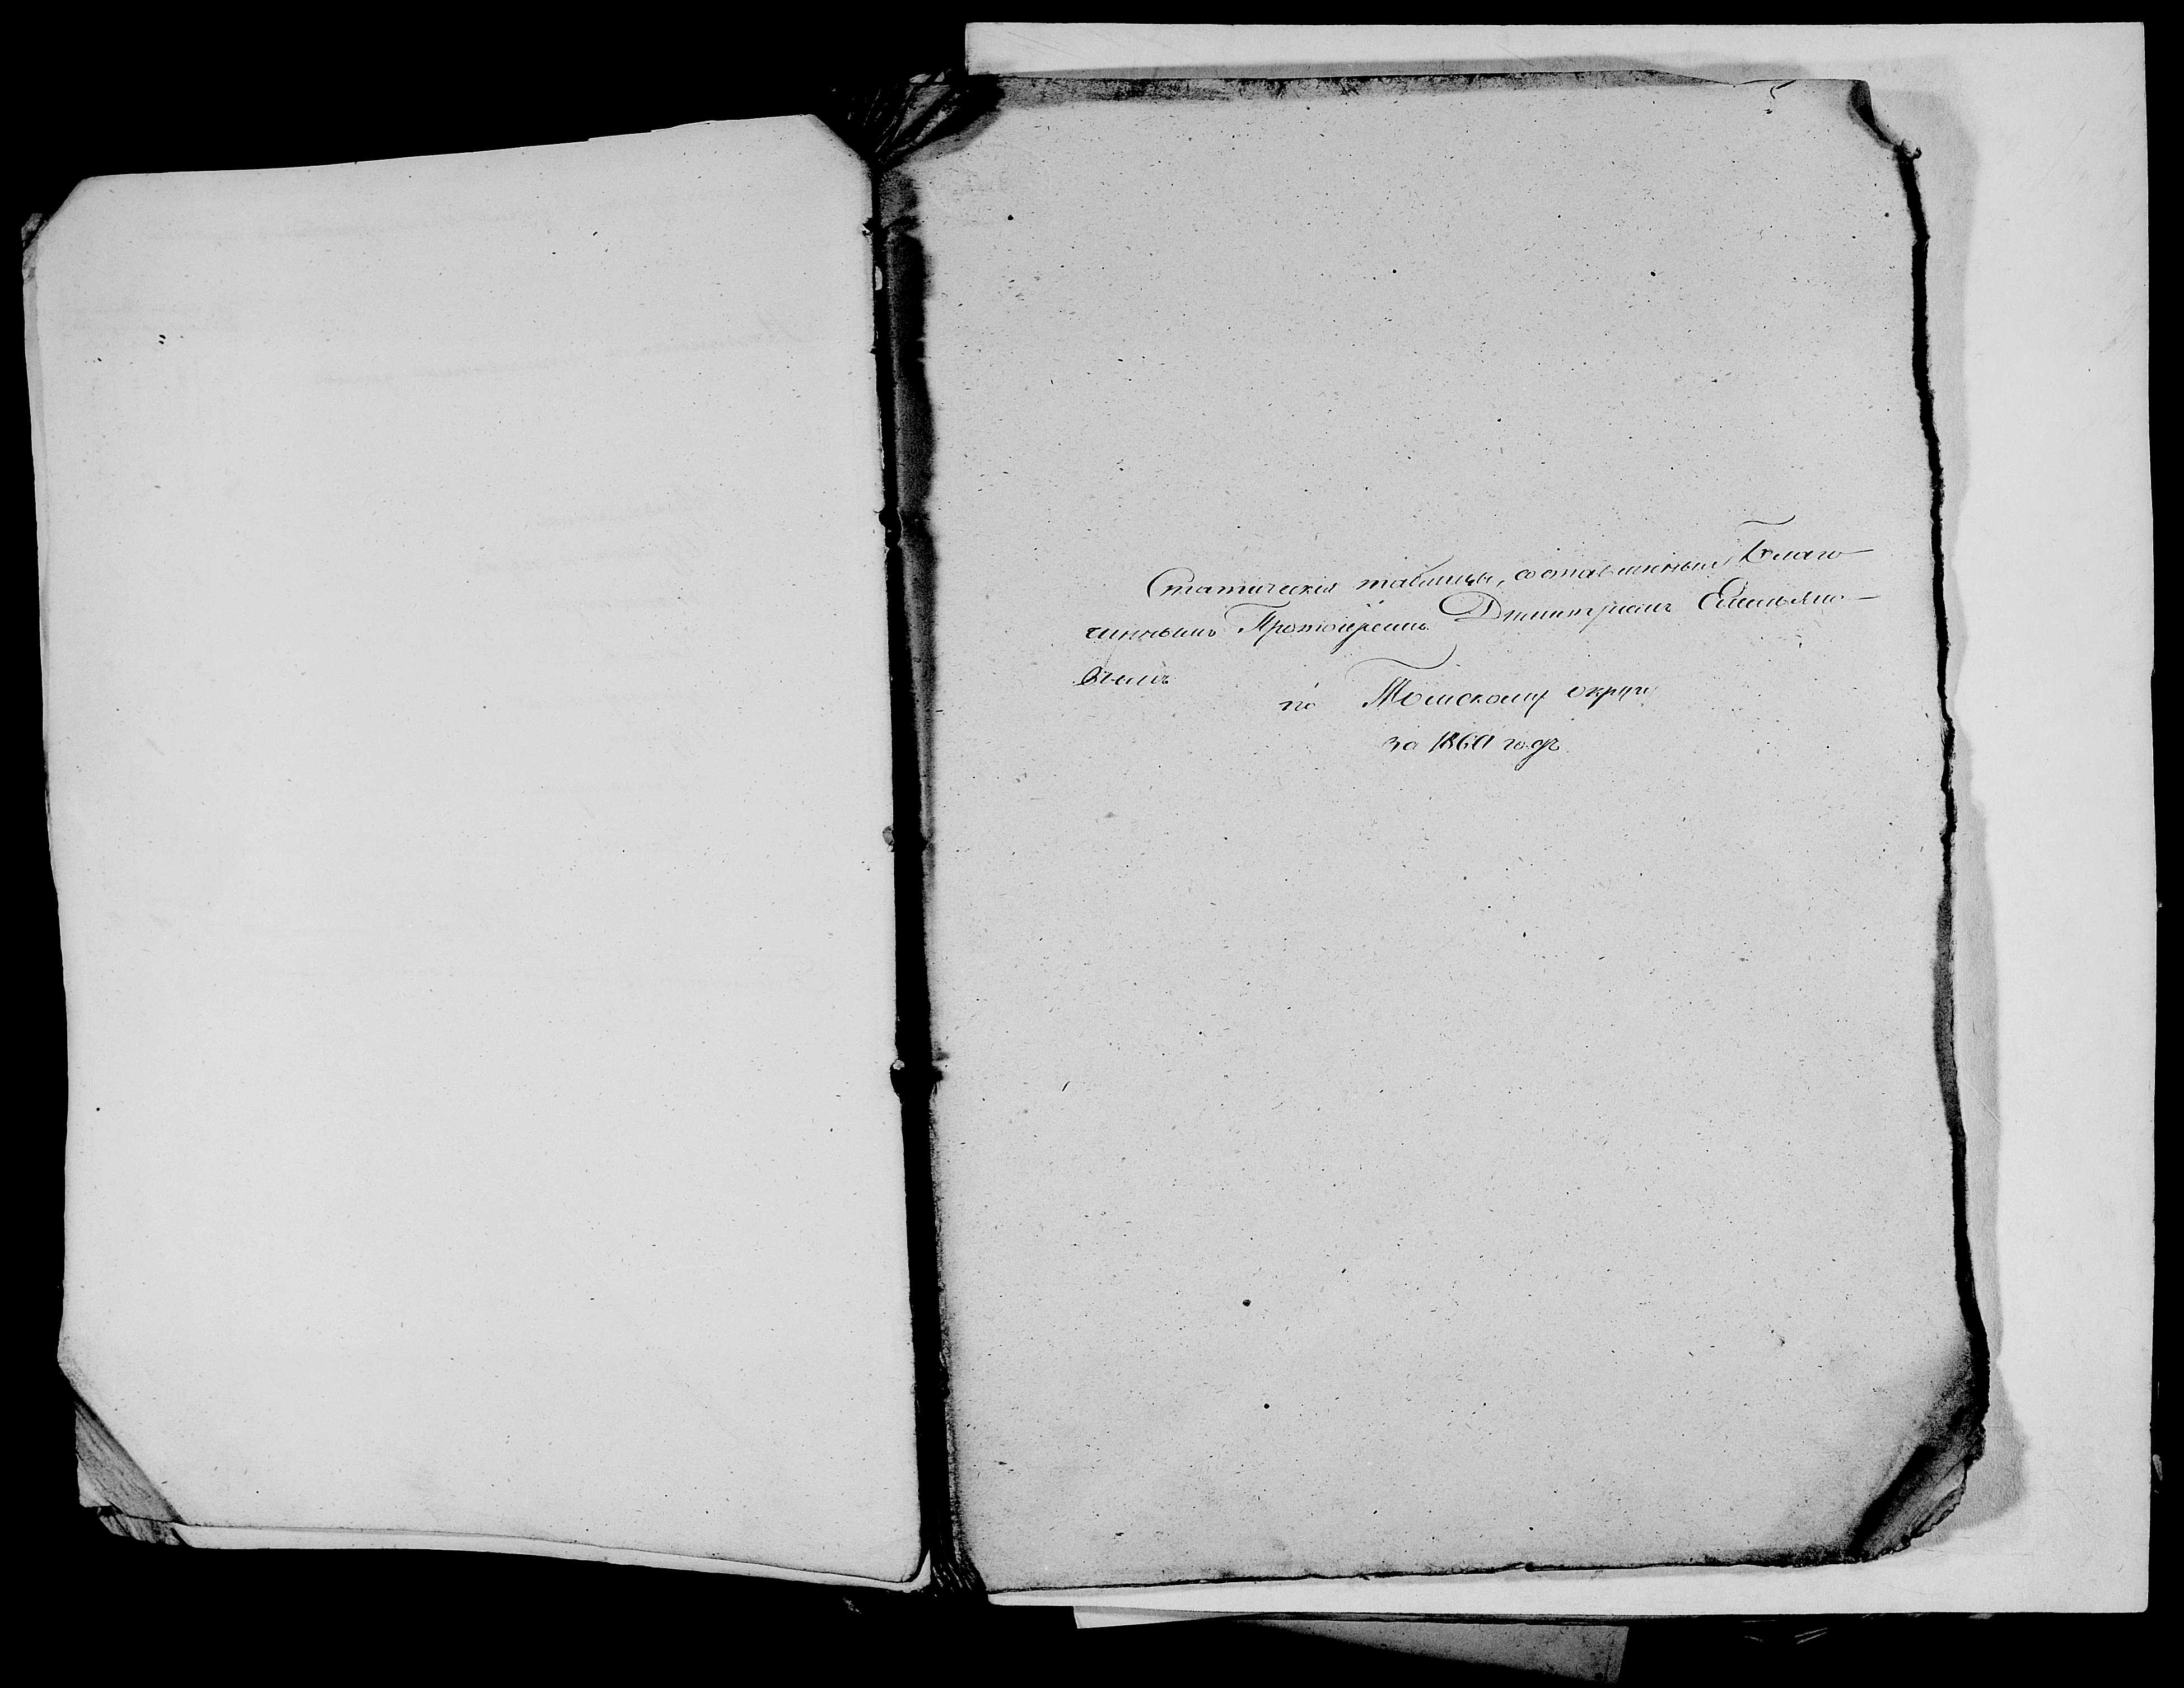 Статическія таблицы, составленныя Благо-
чиннымъ Протоіереемъ Димитріемъ Емельяно-
вымъ
по Томскому округу
за 1860 годъ